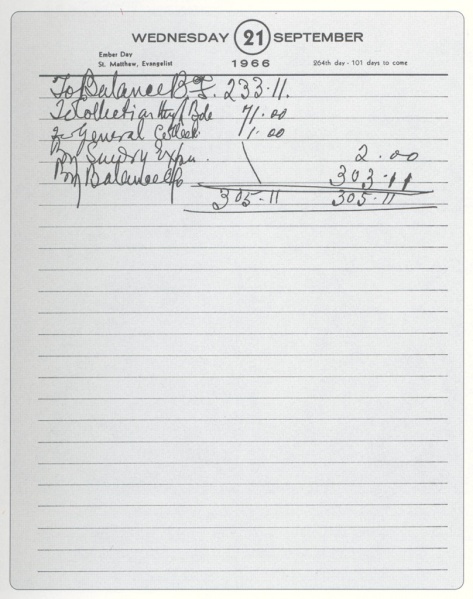 WEDNESDAY 21 SEPTEMBER
Ember Day
St. Matthew, Evangelist 1966 264th day - 101 days to come
To Balance B.F. 233.11.
To Collection 71.00
To General Collect. 1.00
By Sundry Expn. 2.00
By Balance c/o 303.11
305.11 305.11